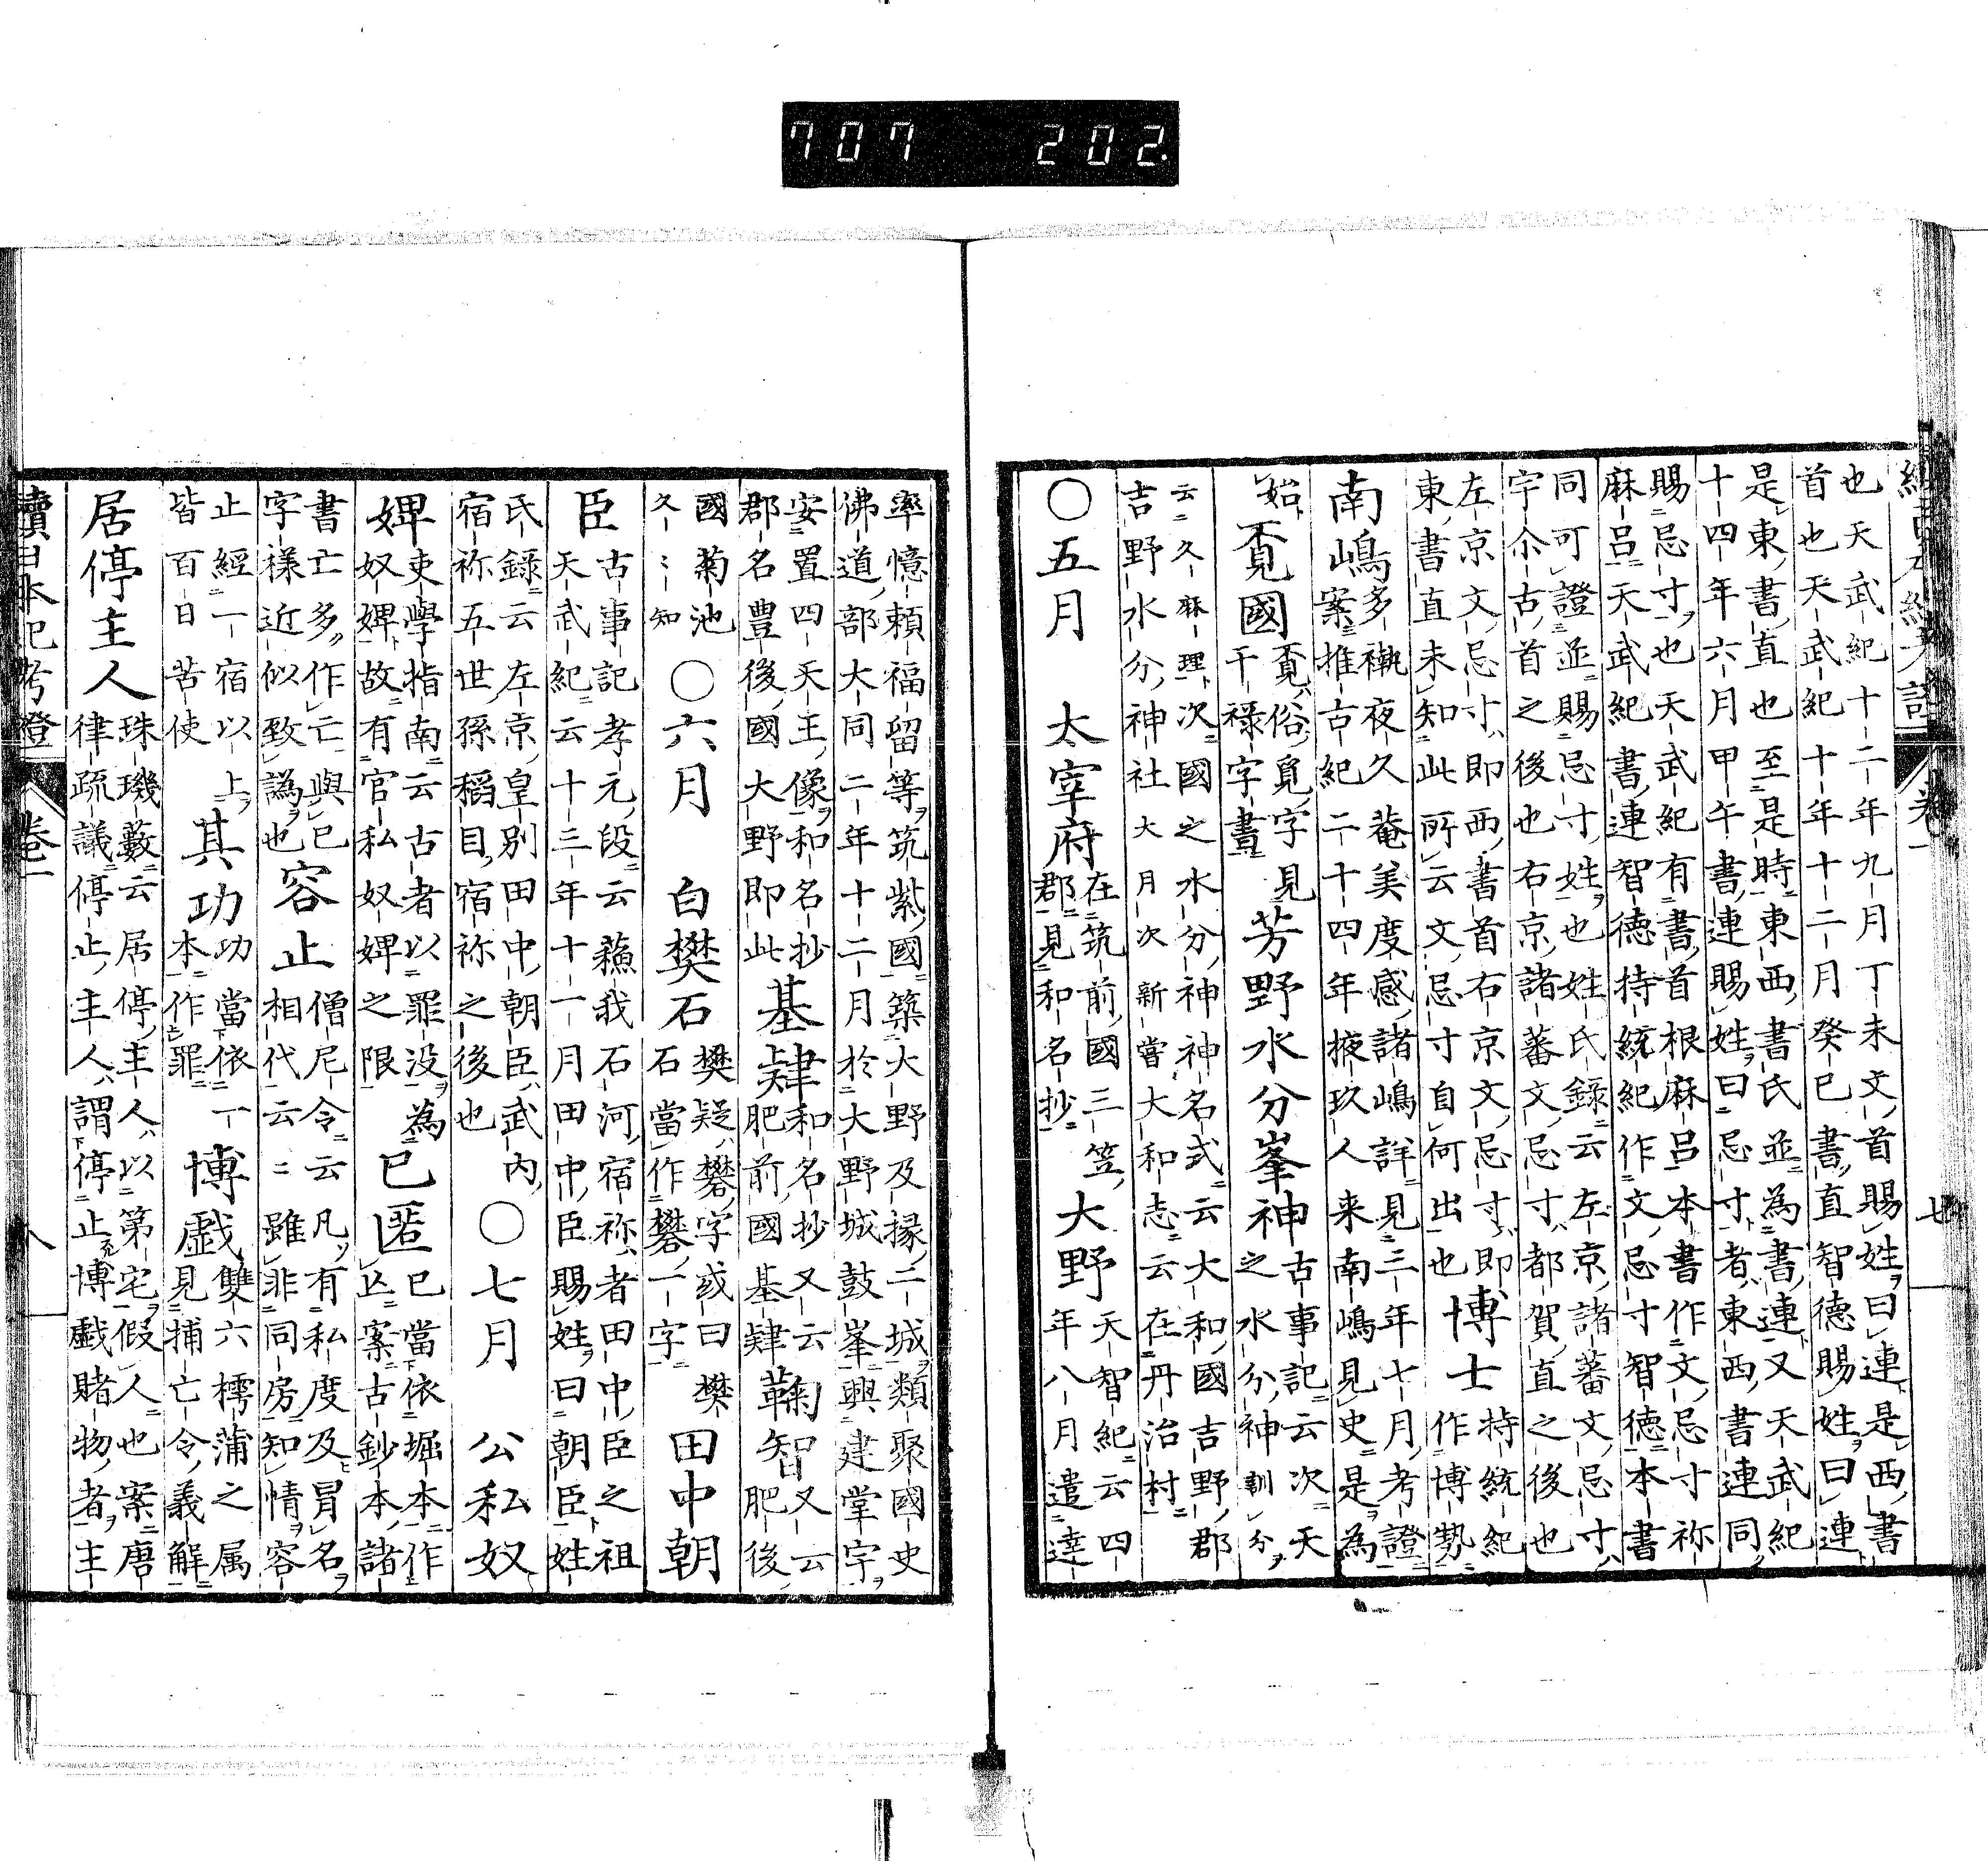 707 202
也天武紀十二年九月丁未文首賜姓曰連是西書
首也天武紀十年十二月癸巳書直智德賜姓曰連
是東書直也至是時東西書氏並為書連又天武紀
十四年六月甲午書連賜姓曰忌寸者東西書連同
賜忌寸也天武紀有書首根麻呂本書作文忌寸祢
麻呂天武紀書連智德持統紀作文忌寸智徳本書
同可證並賜忌寸姓也姓氏録云左京諸蕃文忌寸
字尒古首之後也右京諸蕃文忌寸都賀直之後也
左京文忌寸即西書首右京文忌寸即
東書直未知此所云文忌寸自何出也
博士
持統紀
作博勢
南嶋
多褹夜久菴美度感諸嶋詳見三年七月考證
案推古紀二十四年掖玖人来南嶋見史是為
始
覔國
覔俗覓字見
干祿字書
芳野水分峯神
古事記云次天
之水分神訓分
云久麻理次國之水分神神名式云大和國吉野郡
吉野水分神社大月次新嘗大和志云在丹治村
〇五月
太宰府
在筑前國三笠
郡見和名抄
大野
天智紀云四
年八月遣達
率憶頼福留等筑紫國築大野及掾二城類聚國史
佛道部大同二年十二月於大野城鼓峯興建堂宇
安置四天王像和名抄
郡名豊後國大野即此
基肄
和名抄又云
肥前國基肄
鞠智
又云
肥後
國菊池
久々知
〇六月
白樊石
樊疑礬字或曰樊
石當作礬一字
田中朝
臣
古事記孝元段云蘓我石河宿祢者田中臣之祖
天武紀云十三年十一月田中臣賜姓曰朝臣姓
氏録云左京皇別田中朝臣武内
宿祢五世孫稻目宿祢之後也
〇七月
公私奴
婢
吏學指南云古者以罪没為
奴婢故有官私奴婢之限
已匿
已當依堀本作
亾案古鈔本諸
書亡多作亡與已
字樣近似致譌也
容止
僧尼令云凡有私度及冒名
相代云々雖非同房知情容
止經一宿以上
皆百日苦使
其功
功當依一
本作罪
博戯
雙六樗蒲之属
見捕亡令義解
居停主人
珠璣藪云居停主人以第宅假人也案唐
律疏議停止主人謂停止博戯賭物者主
續日本紀考證 卷一 八